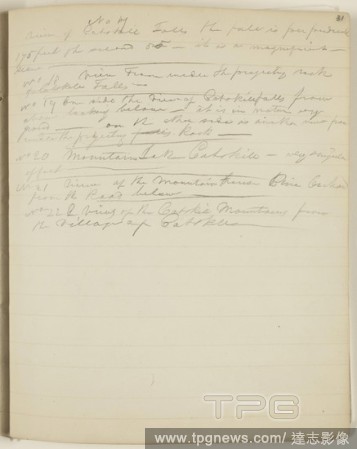 31
No 17
View of Catskill Falls the fall is perpendicular
175 feet the second 85 - it is a magnificent
No 18 View From under the projecting rock
Catskill Falls -
No 19 On side the View of Catskill falls from
above looking below - it is in water very
good - on the other side as similar
under the projecting Rock -
No 20 Mountain Lake Catskill - very
No 21 View of the Mountain House
from the Road below
No 22 View of the Catskill Mountains from
the Village of Catskill
TPG
www.tpgnews.com/ 達志影像